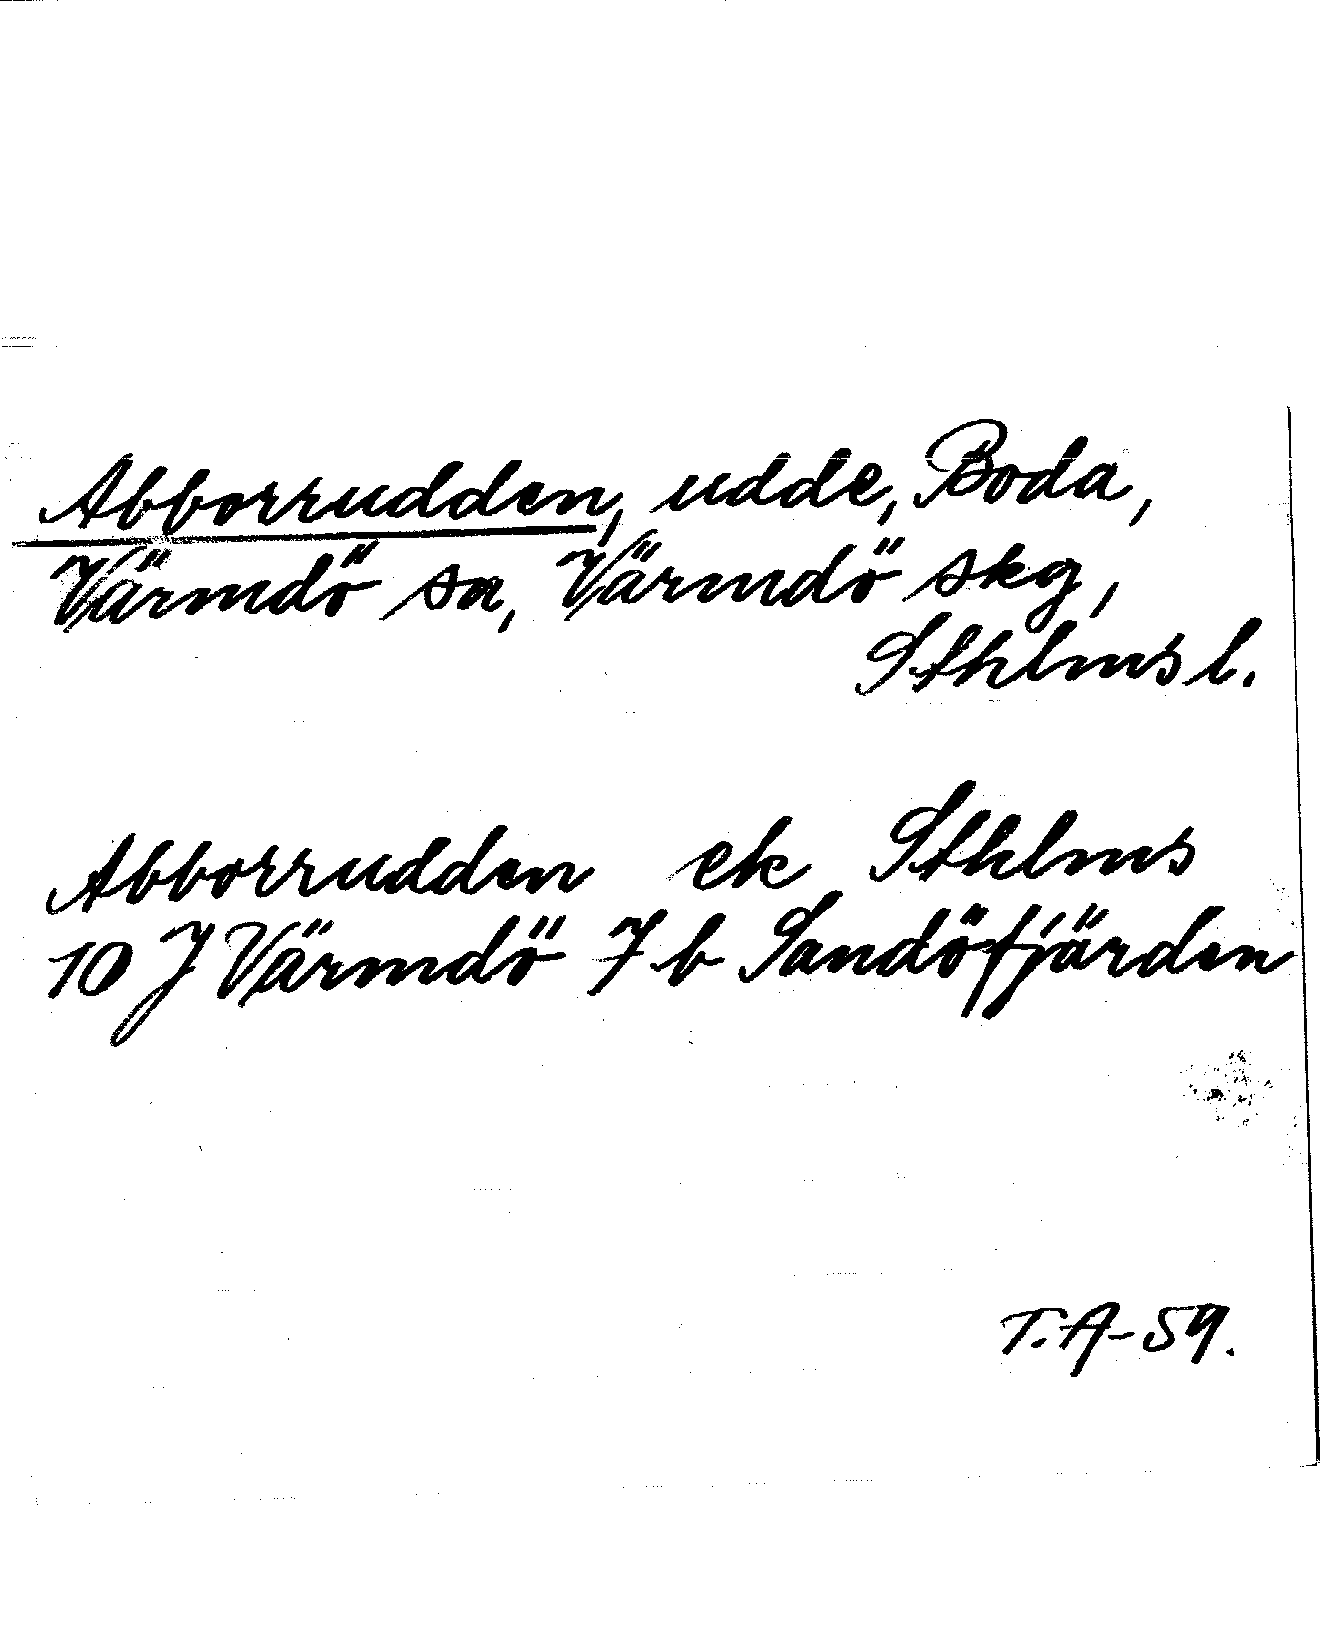 Abborrudden, udde, Boda,
Värmdö sn, Värmdö skg,
Sthlms l.
Abborrudden ek Sthlms
10 J Värmdö 7 b Sandöfjärden
T.A-59.